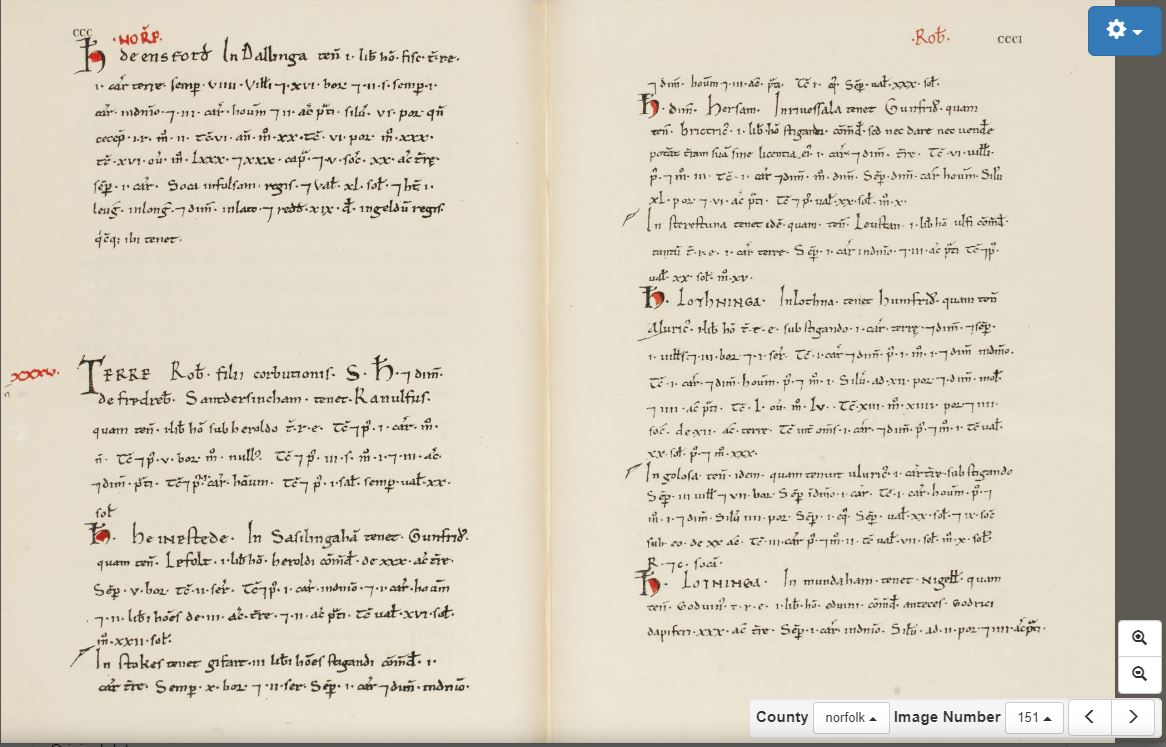 CCC
·NORF·
H deensford In Dallinga teñ ı· lib hõ· fisc· t̃·re·
ı· car̃ terre· semp· VIIII· Villi ⁊·XVI· bor ⁊·II·s· semp·ı·
car̃· indñio·⁊·III· car̃· houm̃ ⁊ II· ac̃ p̃ti·
cecep̃· m̃· II· XX· VI· por· m̃· XXX·
XVI· m̃· LXXX· ⁊XXX· cap̃·⁊·V· soc̃· XX· ac̃ t̃rę·
sẽp· ı· car̃· Soca infolsam· regis·⁊ val̃· XL· sol̃·⁊ ht̃ ı·
leug̃· inlong̃·⁊ dim̃· inlato·⁊ redd̃·XIX· d̃· ingeldũ regis·
ibi tenet·
XXXV·
TERRE Rob̃· filii corbutionis· S· H·⁊ dim̃·
de fredreb̃· Santdersincham· tenet· Ranulfus·
quam teñ· lib̃ hõ sub heroldo t̃·r·e· Tc̃ ⁊ p̃· ı· car̃· m̃·
ñ· Tc̃ ⁊ p̃· V· bor· m̃· null'· Tc̃ ⁊ p̃· III· s· m̃· ı·⁊·III· ac̃·
⁊ dim̃· p̃ti· car̃· hõum· Tc̃ ⁊ p̃· ı· sal̃· semp· val̃· XX·
sol̃
H· HEINESTEDE· In Sasilingahã tenet· Gunfrid̃·
quam teñ· Lefolt· ı·lib̃ hõ· heroldi cõm̃d̃· de XXX· ac̃ t̃re·
Sẽp· V·bor· Tc̃·II·ser̃· Tc̃ ⁊ p̃· ı·car̃·indñio·⁊·ı·car̃·hoũm
⁊·II·libi hões de·III· ac̃·t̃re·⁊·II·ac̃ p̃ti· Tc̃ val̃·XVI·sol̃·
m̃·XXII·sol̃·
In stokes tenet gifart·III libi hões stigandi cõm̃d̃· ı·
car̃ t̃re· Semp· X·bor·⁊·II·ser· Sẽp· ı·car̃ ⁊ dim̃· indñio·
·Rob̃·
CCCI
⁊ dim̃· houm̃ ⁊·III·ac̃· p̃ti· Tc̃·ı· eq̃· Sẽp· val̃·XXX·sol̃·
H· dim̃· Hersam· Inriuessala tenet Gunfrid̃· quam
teñ· brictric̃· ı·lib̃ hõ stigandi cõm̃d̃· sed nec dare nec vende
potãt t̃ram suã sine licentia ei'· ı·car̃·⁊ dim̃· t̃re· Tc̃·VI·villi·
p̃·⁊ m̃·III· Tc̃·ı·car̃ ⁊ dim̃· m̃·dim̃· Sẽp·dim̃·car̃ houm̃· Silũ
XL·por·⁊·VI·ac̃ p̃ti· Tc̃ ⁊ p̃·val̃·XX·sol̃·m̃·X·
In sterestuna tenet idẽ· quam· teñ· Leustan· ı·lib̃ hõ ulfi cõm̃d̃·
tantũ t̃·r·e· ı·car̃ terre· Sẽp· ı·car̃ indñio·⁊·III·ac̃ p̃ti Tc̃ ⁊ p̃·
val̃· XX·sol̃· m̃·XV·
H· LOTHNINGA· Inlothna· tenet humfrid̃· quam teñ
Aluric̃· lib̃ hõ t̃·r·e· sub stigando·ı·car̃·terrę·⁊ dim̃·⁊ sẽp·
ı·vills·⁊·III·bor·⁊·ı·ser̃· Tc̃·ı·car̃ ⁊ dim̃· p̃·ı· m̃·ı·⁊ dim̃ indñio·
Tc̃·ı·car̃·⁊ dim̃·houm̃· p̃·⁊ m̃·ı· Silũ·ad·XII·por·⁊·dim̃·mol̃·
⁊·IIII·ac̃ p̃ti· Tc̃·L·oũ· m̃·LV· Tc̃·XIII·m̃·XIIII·por·⁊·IIII·
soc̃·de·XII·ac̃·terre· Tc̃ int̃ om̃s·ı·car̃·⁊ dim̃·p̃·⁊ m̃·ı·Tc̃ val̃·
XX·sol̃·p̃·⁊ m̃·XXX·
In golosa· teñ·idem· quam tenuit aluric̃·ı·car̃ t̃re·sub stigando
Sẽp·III·vill̃·⁊·VII·bor· Sẽp·indñio·ı·car̃· Tc̃·ı·car̃·houm̃·p̃·⁊
m̃·ı·⁊ dim̃· Silũ IIII·por· Sẽp·ı·eq̃· Sẽp·val̃·XX·sol̃·⁊·IX·soc̃
sub·eo·de XX·ac̃· Tc̃·III·car̃ p̃·⁊ m̃·II·Tc̃ val̃·VII·sol̃·m̃·X·sol̃·
R·⁊ c· socã·
H· LOTNINGA· In mundaham·tenet·nigell̃· quam
teñ· Goduin' t·r·e·ı·lib̃·hõ· eduini· cõm̃d̃· anteces· Godrici
dapiferi·XXX·ac̃ t̃re· Sẽp·ı·car̃ indñio· Silũ·ad·II·por·⁊·IIII·ac̃ p̃ti·
County norfolk Image Number 151